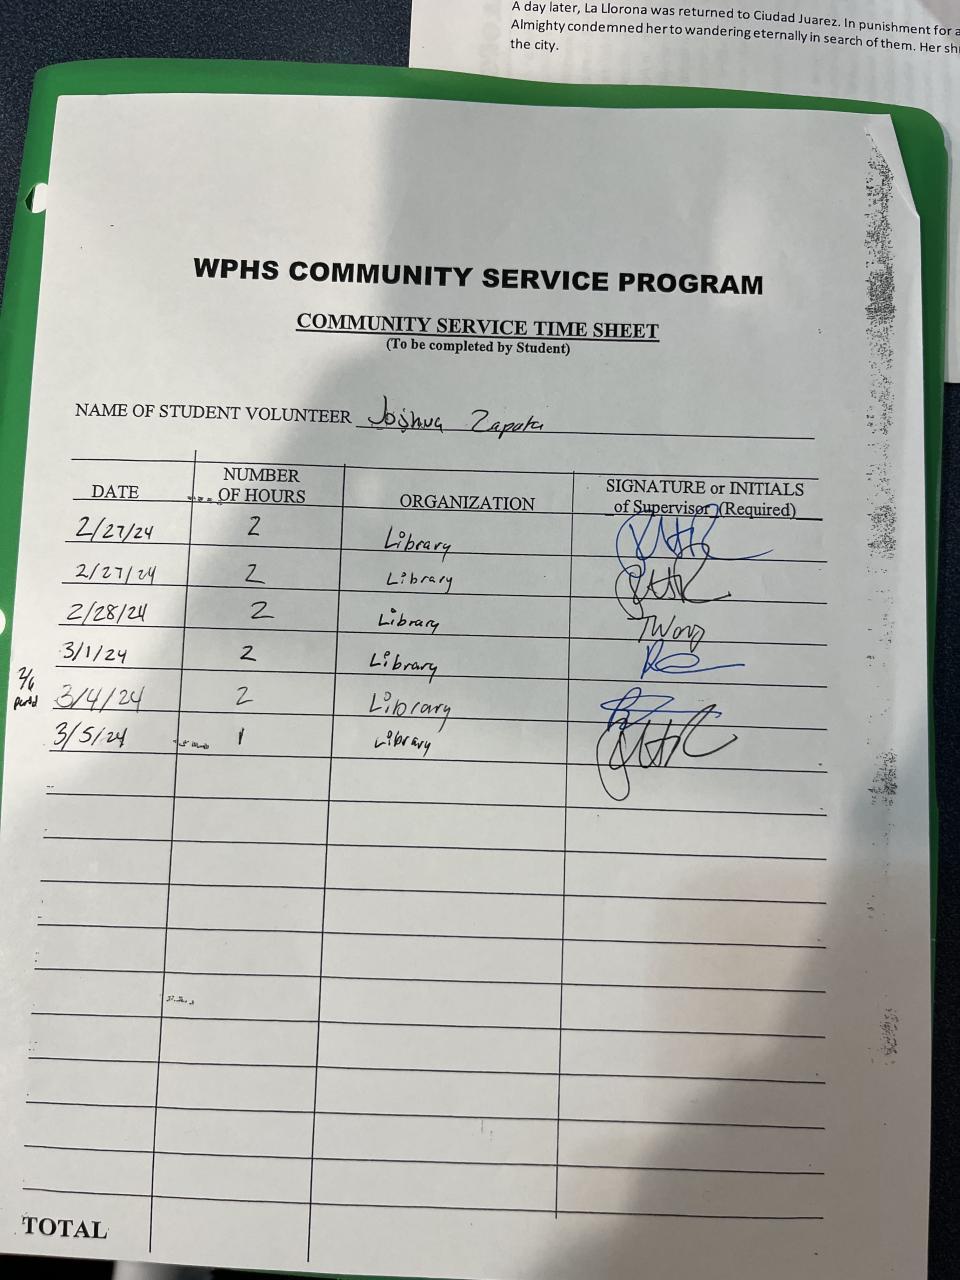 A day later, La Llorona was returned to Ciudad Juarez. In punishment for a
Almighty condemned her to wandering eternally in search of them. Her shr
the city.
WPHS COMMUNITY SERVICE PROGRAM
COMMUNITY SERVICE TIME SHEET
(To be completed by Student)
NAME OF STUDENT VOLUNTEER Joshua Zapata
DATE NUMBER OF HOURS ORGANIZATION SIGNATURE or INITIALS of Supervisor (Required)
2/27/24 2 Library
2/27/24 2 Library
2/28/24 2 Library TWong
3/1/24 2 Library
2/6 period 3/4/24 2 Library
3/5/24 1 Library
TOTAL